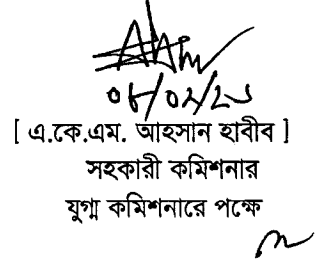 [ এ.কে.এম. আহসান হাবীব ]
সহকারী কমিশনার
যুগ্ম কমিশনারে পক্ষে